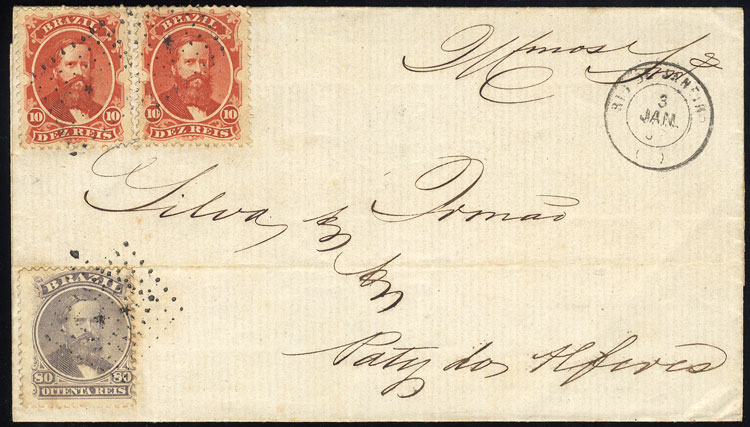 BRAZIL BRAZIL
10 10 10 10
DEZ REIS DEZ REIS
Illmos Srs
RIO DE JANEIRO
3
JAN.
Silva & Irmão
Paty dos Alferes
BRAZIL
80 80
OITENTA REIS